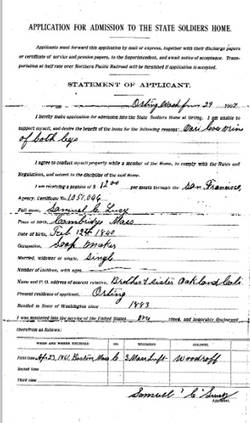 APPLICATION FOR ADMISSION TO THE STATE SOLDIERS HOME.
Applicants must forward this application by mail or express, together with their discharge papers
or certificate of service and pension papers, to the Superintendent, and await notice of acceptance. Trans-
portation at half rate over Northern Pacific Railroad will be furnished if application is accepted.
STATEMENT OF APPLICANT.
Orting Wash 29 190
I hereby make application for admission into the State Soldiers Home at Orting. I am unable to
support myself, and desire the benefit of the home for the following reasons:
of both legs
I agree to conduct myself properly while a Member of the Home, to comply with the Rules and
Regulations, and submit to the discipline of the said Home.
I am receiving a pension of $ 12 00 per month through the San Francisco,
Agency. Certificate No. 1051,046
Full name, Samuel C.
Place of birth, Cambridge Mass
Date of birth, Feb 12th 1840
Occupation, Soap Maker
Married, widower or single, Single
Number of children, with ages,
Name and P. O. address of nearest relative, Brother & sister Oakland Cala
Present residence of applicant, Orting
Resided in State of Washington since 1883
I was mustered into the service of the United States one times, and honorably discharged
therefrom as follows:
WHEN AND WHERE ENROLLED CO.
First time Apr 23, 1861, Boston Mass C 5 Mass Inft Woodroff
Second time
Third time
Samuel "C"
Applicant.